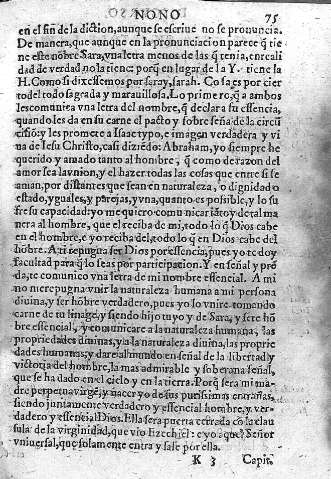 NONO 75
en el fin de la diction, aunque se escriue no se pronuncia.
De manera, que aunque en la pronunciacion parece q̃ tiene
este nõbre Sara, vna letra menos de las q̃ tenia, en realidad
de verdad no la tiene: porq̃ en lugar de la Y. tiene la
H. Como si dixessemos por Saray, Sarah. Cosa es por cierto
del todo sagrada y marauillosa. Lo primero, q̃ a ambos
les comunica vna letra del nombre, q̃ declara su essencia,
quando les da en su carne el pacto y señal de la circũ
cisiõ, y les promete a Isaac typo, e imagen verdadera y viua
de Iesu Christo, casi diziẽdo: Abraham, yo siempre he
querido y amado tanto al hombre, q̃ como de razon del
amor sea la vnion, y el hazer todas las cosas que entre si se
aman, por distantes que sean en naturaleza, o dignidad o
estado, yguales, y parejas, y vna, quanto es posible, y lo su
fre su capacidad: yo me quiero comunicar
al hombre, que el reciba de mi, todo lo q̃ Dios cabe
en el hombre, e yo reciba del, todo lo q̃ en Dios cabe del
hõbre. A ti repugna ser Dios por essencia, pues yo te doy
facultad para q̃ lo seas por participation. Y en señal y prẽ
da, te comunico vna letra de mi nombre essencial. A mi
no me repugna vnir la naturaleza humana a mi persona
diuina, y ser hõbre verdadero, pues yo lo vnire tomando
carne de tu linage, y siendo hijo tuyo y de Sara, y sere hõ
bre essencial, y comunicare a la naturaleza humana, las
propriedades diuinas, y a la naturaleza diuina, las proprie
dades humanas, y dare al mundo en señal de la libertad y
victoria del hombre, la mas admirable y soberana señal,
que se ha dado en el cielo y en la tierra. Porq̃ sera mi ma
dre perpetua virgẽ, y nacer yo de sus purissimas entrañas,
siendo juntamente verdadero y essencial hombre, y ver-
dadero y essencial Dios. Ella sera puerta cerrada cõ la clau
sula de la virginidad, que vio Ezechiel: e yo aquel Señor
vniuersal, que solamente entra y sale por ella.
K 3 Capit.